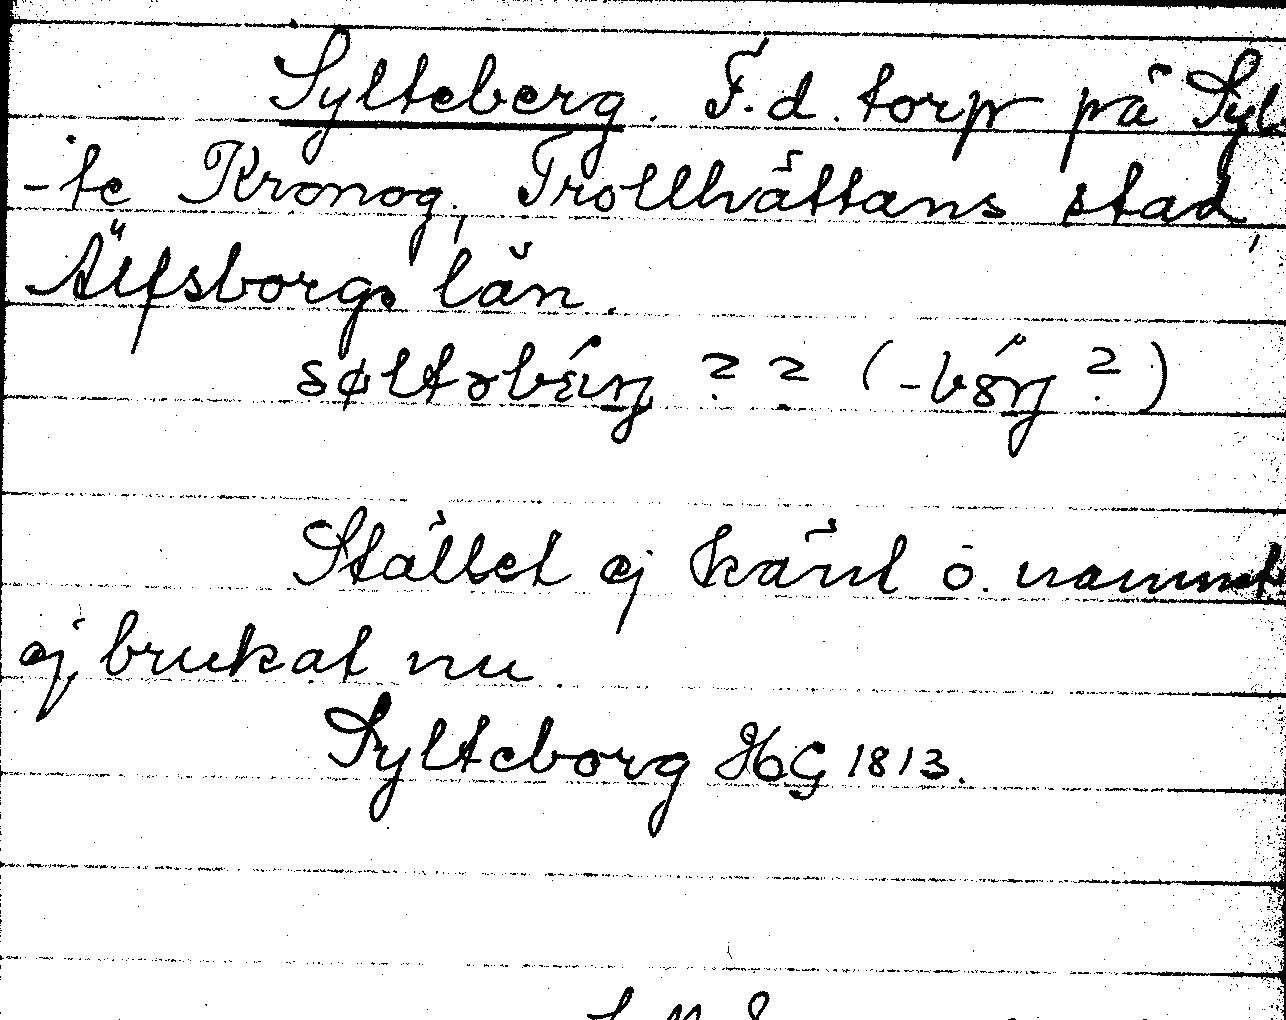 Sylteberg. F.d. torp på Syl-
-te Kronog., Trollhättans stad,
Älfsborgs län.
søltəbærj ? ? (-bɔrj ?)
Stället ej känt o. namnet
ej brukat nu.
Sylteborg HG 1813.